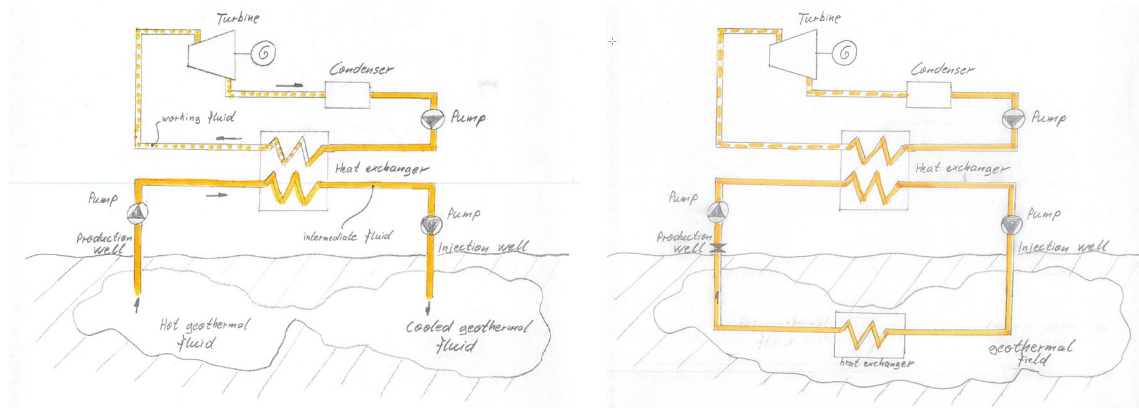 Turbine
G
Condenser
Pump
working fluid
Heat exchanger
Pump
intermediate fluid
Pump
Production
well
Injection well
Hot geothermal
fluid
Cooled geothermal
fluid
Turbine
G
Condenser
Pump
Heat exchanger
Pump
Pump
Production
well
Injection well
geothermal
field
heat exchanger